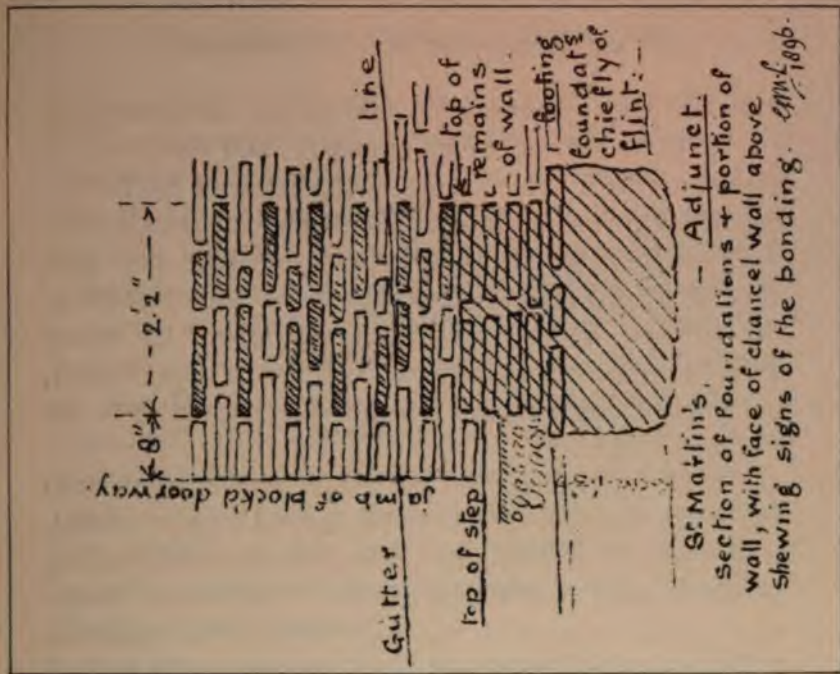 8" 2'.2"
jamb of block'd doorway.
Gutter line
top of
remains
of wall.
top of step
footing
foundats
chiefly of
flint:-
St. Martin's. - Adjunct.
section of foundations + portion of
wall, with face of chancel wall above
shewing signs of the bonding. 1896.